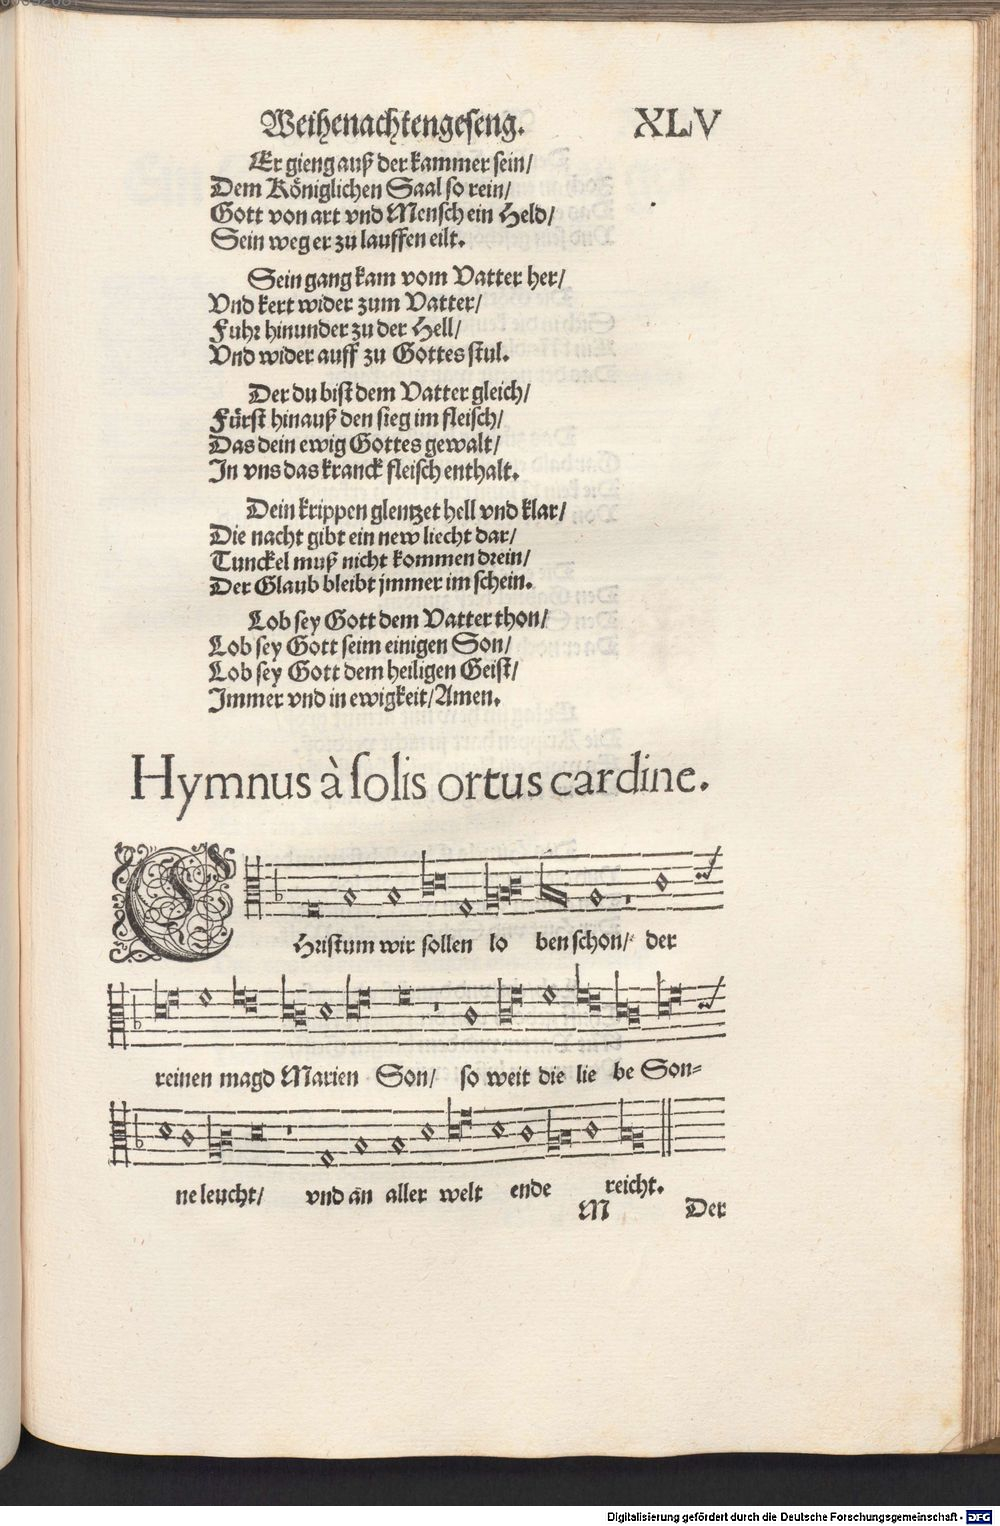 Weihenachtengeseng. XLV
Er gieng auß der kammer sein/
Dem Königlichen Saal so rein/
Gott von art vnd Mensch ein Held/
Sein weg er zu lauffen eilt.
Sein gang kam vom Vatter her/
Vnd kert wider zum Vatter/
Fuhr hinunder zu der Hell/
Vnd wider auff zu Gottes stul.
Der du bist dem Vatter gleich/
Fürst hinauß den sieg im fleisch/
Das dein ewig Gottes gewalt/
In vns das kranck fleisch enthalt.
Dein krippen glentzet hell vnd klar/
Die nacht gibt ein new liecht dar/
Tunckel muß nicht kommen drein/
Der Glaub bleibt jmmer im schein.
Lob sey Gott dem Vatter thon/
Lob sey Gott seim einigen Son/
Lob sey Gott dem heiligen Geist/
Immer vnd in ewigkeit/Amen.
Hymnus à solis ortus cardine.
CHristum wir sollen lo ben schon/ der
reinen magd Marien Son/ so weit die lie be Son-
ne leucht/ vnd an aller welt ende reicht.
M Der
Digitalisierung gefördert durch die Deutsche Forschungsgemeinschaft - DFG